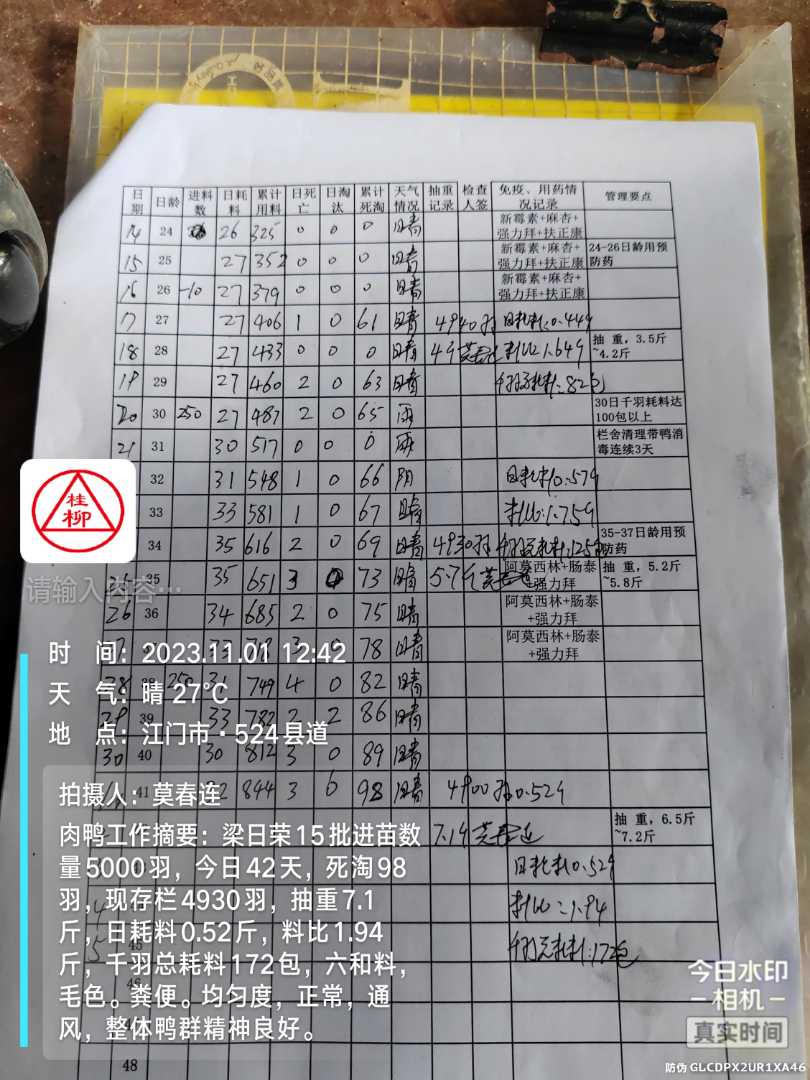 日期 日龄 进料数 日耗料 累计用料 日死亡 日淘汰 累计死淘 天气情况 抽重记录 检查人签 免疫、用药情况记录 管理要点
14 24 26 325 0 0 0 晴 新霉素+麻杏+强力拜+扶正康
15 25 27 352 0 0 0 晴 新霉素+麻杏+强力拜+扶正康 24-26日龄用预防药
16 26 -10 27 379 0 0 0 晴 新霉素+麻杏+强力拜+扶正康
17 27 27 406 1 0 61 晴 4940羽 日耗料:0.449
18 28 27 433 0 0 0 晴 4斤 料比1.649 抽重,3.5斤~4.2斤
19 29 27 460 2 0 63 晴 82包
20 30 250 27 487 2 0 65 雨 30日千羽耗料达100包以上
21 31 30 517 0 0 0 雨 栏舍清理带鸭消毒连续3天
32 31 548 1 0 66 阴 日耗料0.579
33 33 581 1 0 67 晴 料比:1.759
34 35 616 2 0 69 晴 4930羽 35-37日龄用预防药
35 35 651 3 73 晴 5.7斤 阿莫西林+肠泰+强力拜 抽重,5.2斤~5.8斤
26 36 34 685 2 0 75 晴 阿莫西林+肠泰+强力拜
3 0 78 晴 阿莫西林+肠泰+强力拜
28 250 31 749 4 0 82 晴
29 39 33 782 2 2 86 晴
30 40 30 812 3 0 89 晴
41 844 3 6 98 晴 4900羽 0.529
7.1斤 莫春连 抽重,6.5斤~7.2斤
日耗料0.529
料比=1.94
48
桂柳
请输入内容…
时 间:2023.11.01 12:42
天 气:晴 27℃
地 点:江门市·524县道
拍摄人:莫春连
肉鸭工作摘要:梁日荣15批进苗数
量5000羽,今日42天,死淘98
羽,现存栏4930羽,抽重7.1
斤,日耗料0.52斤,料比1.94
斤,千羽总耗料172包,六和料,
毛色。粪便。均匀度,正常,通
风,整体鸭群精神良好。
今日水印
相机
真实时间
防伪 GLCDPX2UR1XA46